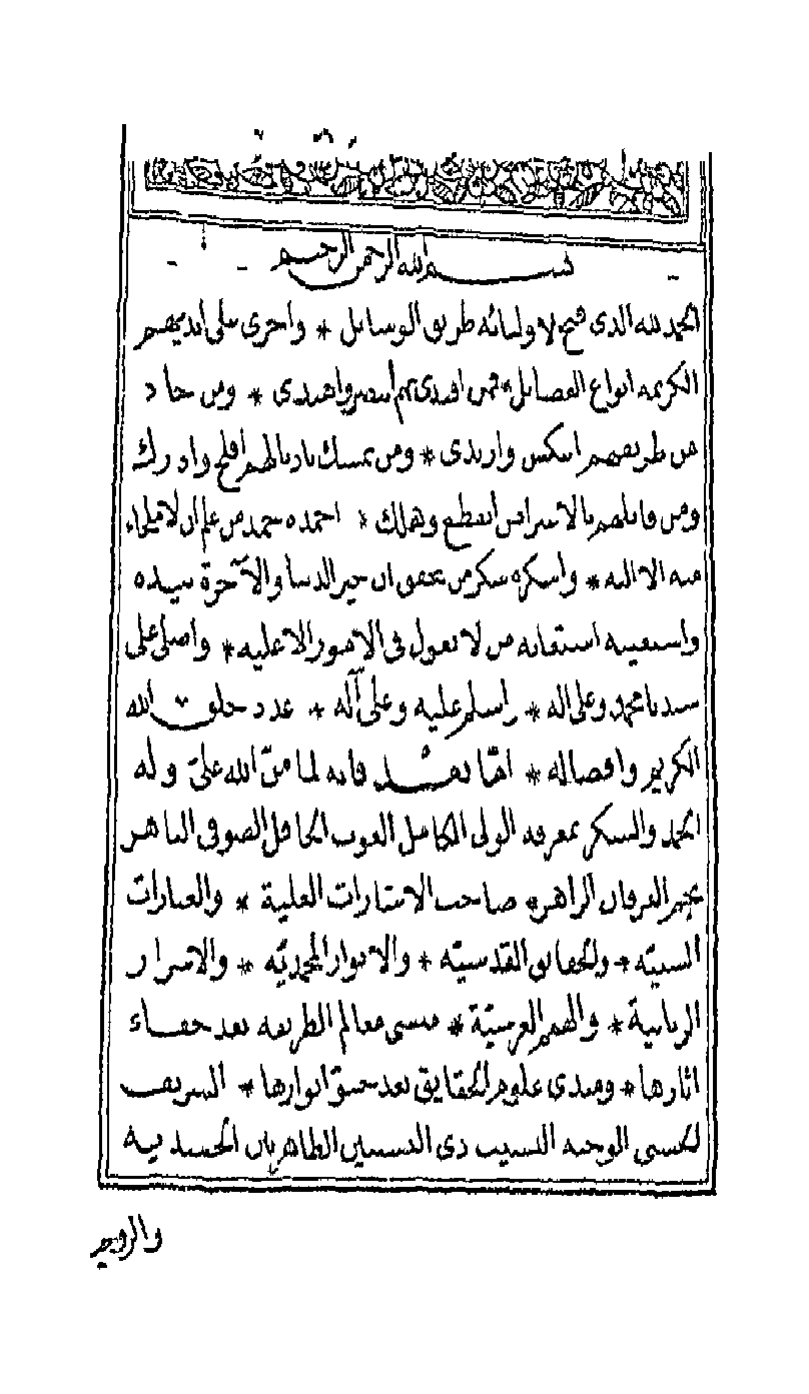 بسم الله الرحمن الرحيم
الحمد لله الذى فتح لاوليائه طريق الوسايل * واجرى على ايديهم
الكريمة انواع الفضايل * فمن اقتدى بهم انتصر واهتدى * ومن حاد
عن طريقهم انتكس وارتدى * ومن تمسك باذيالهم افلح وادرك
ومن قابلهم بالاعتراض انقطع وهلك * احمده حمد من علم ان لا ملجاء
منه الا اليه * واشكره شكر من تحقق ان خير الدنيا والآخرة بيده
واستعينه استعانة من لا يعول فى الامور الا عليه * واصلى على
سيدنا محمد وعلى اله * واسلم عليه وعلى آله * عدد خلق الله
الكريم وافضاله * امّا بعد فانه لما منّ الله علىّ وله
الحمد والشكر بمعرفة الولى الكامل الغوث الحافل الصوفى الباهر
نجم العرفان الزاهر * صاحب الاشارات العلية * والعبارات
السنيّه * والحقايق القدسيّه * والانوار المحمديّه * والاسرار
الربانية * والهمم العرشيّة * منشى معالم الطريقه بعد خفاء
اثارها * ومبدى علوم الحقايق بعد خبوّ انوارها * الشريف
الحسنى الوجيه النسيب ذى النسبتين الطاهرتان الجسديه
والروحـ